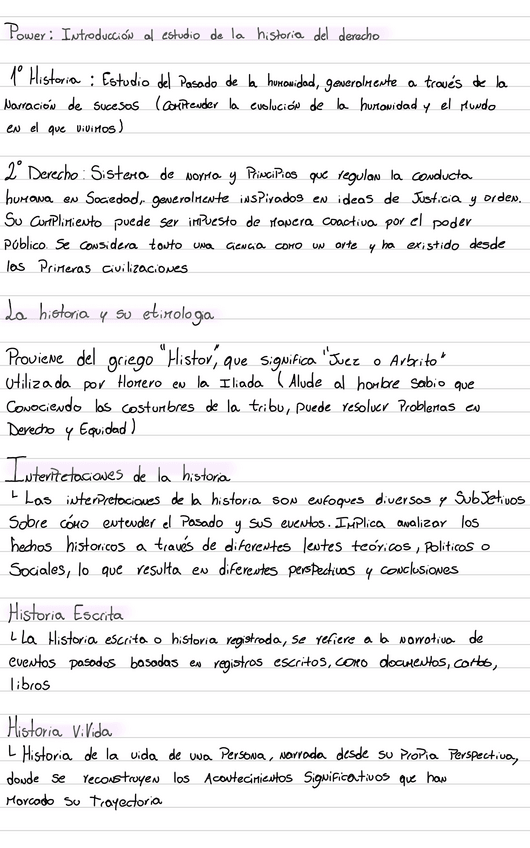 Power: Introducción al estudio de la historia del derecho
1° Historia : Estudio del Pasado de la humanidad, generalmente a través de la
Narración de sucesos (comprender la evolución de la humanidad y el mundo
en el que vivimos)
2° Derecho: Sistema de norma y Principios que regulan la conducta
humana en Sociedad, generalmente inspirados en ideas de Justicia y orden.
Su cumplimiento puede ser impuesto de manera coactiva por el poder
Público. Se considera tanto una ciencia como un arte y ha existido desde
las Primeras civilizaciones
La historia y su etimologia
Proviene del griego "Histor", que significa "Juez o Arbrito"
Utilizada por Homero en la Iliada (Alude al hombre sabio que
Conociendo las costumbres de la tribu, puede resolver Problemas en
Derecho y Equidad)
Interpretaciones de la historia
└ Las interpretaciones de la historia son enfoques diversos y SubJetivos
Sobre cómo entender el Pasado y sus eventos. Implica analizar los
hechos historicos a través de diferentes lentes teóricos, Politicos o
Sociales, lo que resulta en diferentes perspectivas y conclusiones
Historia Escrita
└ La Historia escrita o historia registrada, se refiere a la narrativa de
eventos pasados basadas en registros escritos, como documentos, cartas,
libros
Historia Vivida
└ Historia de la vida de una Persona, narrada desde su Propia Perspectiva,
donde se reconstruyen los Acontecimientos Significativos que han
Marcado su Trayectoria